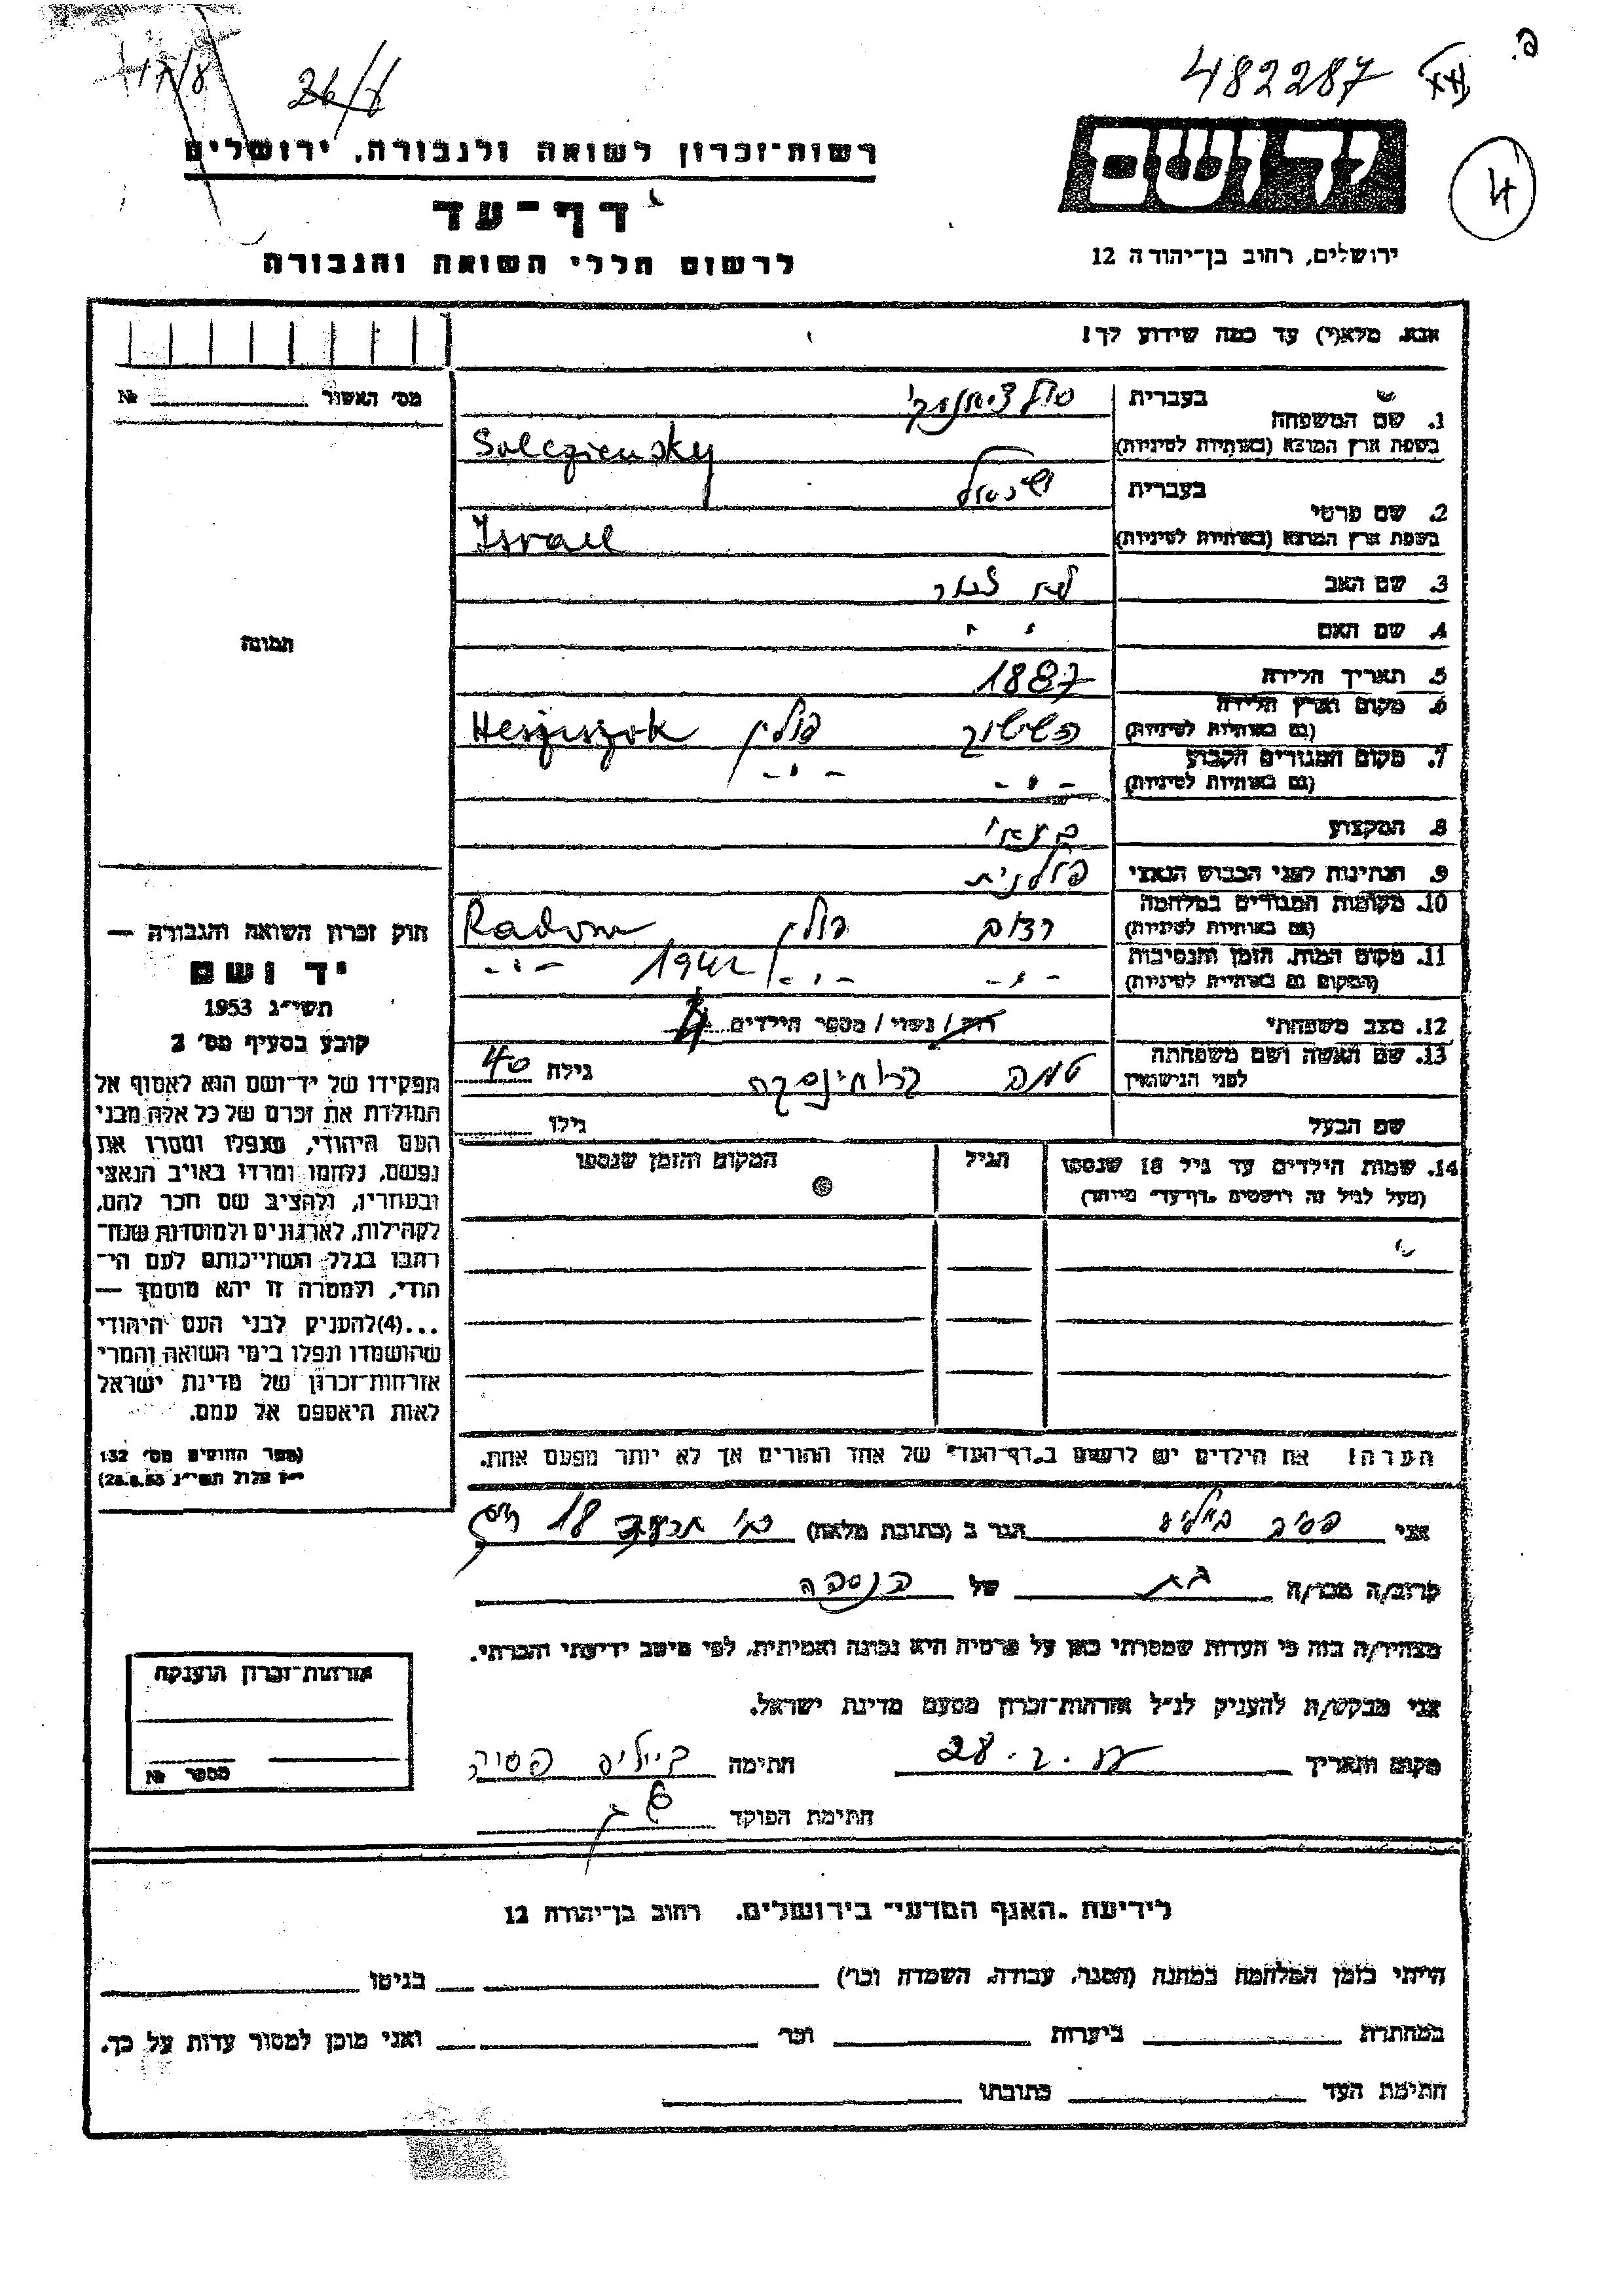 482287
26/8
רשות־זכרון לשואה ולגבורה, ירושלים
ידושם
דף־עד
ירושלים, רחוב בן־יהודה 12
לרשום חללי השואה והגבורה
אנא, מלא(י) עד כמה שידוע לך!
מס׳ האשור № 
1. שם המשפחה
בעברית
בשפת ארץ המוצא (באותיות לטיניות) Solcziensky
2. שם פרטי
בעברית ישראל
בשפת ארץ המוצא (באותיות לטיניות) Israel
3. שם האב
4. שם האם
תמונה
5. תאריך הלידה 1887
6. מקום וארץ הלידה
(גם באותיות לטיניות) פולין
7. מקום המגורים הקבוע
(גם באותיות לטיניות) - " - - " -
8. המקצוע
9. הנתינות לפני הכבוש הנאצי פולנית
10. מקומות המגורים במלחמה
(גם באותיות לטיניות) רדום פולין Radom
11. מקום המות, הזמן והנסיבות
(המקום גם באותיות לטיניות) - " - - " - 1942 - " -
12. מצב משפחתי רוק / נשוי / מספר הילדים 4
13. שם האשה ושם משפחתה
לפני הנישואין גילה 40
שם הבעל גילו
14. שמות הילדים עד גיל 18 שנספו הגיל המקום והזמן שנספו
(מעל לגיל זה רושמים „דף־עד״ מיוחד)
הערה! את הילדים יש לרשום ב„דף־העד״ של אחד ההורים אך לא יותר מפעם אחת.
חוק זכרון השואה והגבורה —
יד ושם
תשי״ג 1953
קובע בסעיף מס׳ 2
תפקידו של יד־ושם הוא לאסוף אל
המולדת את זכרם של כל אלה מבני
העם היהודי, שנפלו ומסרו את
נפשם, נלחמו ומרדו באויב הנאצי
ובעוזריו, ולהציב שם וזכר להם,
לקהילות, לארגונים ולמוסדות שנח־
רבו בגלל השתייכותם לעם הי־
הודי, ולמטרה זו יהא מוסמך —
...(4)להעניק לבני העם היהודי
שהושמדו ונפלו בימי השואה והמרי
אזרחות־זכרון של מדינת ישראל
לאות היאספם אל עמם.
(ספר החוקים מס׳ 132
י״ז אלול תשי״ג 28.8.53)
אני הגר ב (כתובת מלאה) 18
קרוב/ה מכר/ה בת של הנספה
מצהיר/ה בזה כי העדות שמסרתי כאן על פרטיה היא נכונה ואמיתית, לפי מיטב ידיעתי והכרתי.
אני מבקש/ת להעניק לנ״ל אזרחות־זכרון מטעם מדינת ישראל.
מקום ותאריך חתימה
חתימת הפוקד
אזרחות־זכרון הוענקה
מספר №
לידיעת „האגף המדעי״ בירושלים, רחוב בן־יהודה 12
הייתי בזמן המלחמה במחנה (הסגר, עבודה, השמדה וכו׳) בגיטו
במחתרת ביערות וכו׳ ואני מוכן למסור עדות על כך.
חתימת העד כתובתו